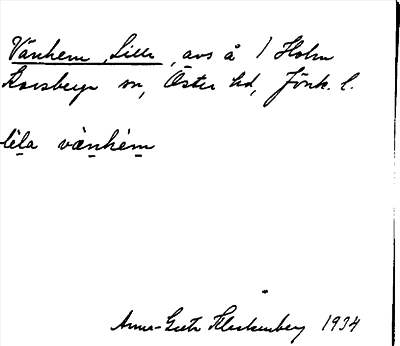 Vänhem, Lilla, avs å 1 Holm
Korsberga sn, Östra hd, Jönk. l.
lìla vä̀nhém
Anna-Greta Hleskenberg 1934